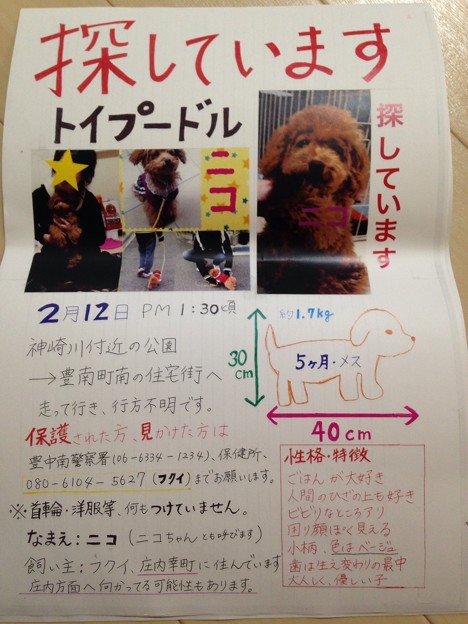 探しています
トイプードル
ニコ
ニコ
探しています
2月12日 PM 1:30頃
神崎川付近の公園
→豊南町南の住宅街へ
走って行き、行方不明です。
保護された方、見かけた方は
豊中南警察署(06-6334-1234)、保健所、
080-6104-5627(フクイ)までお願いします。
※首輪・洋服等、何もつけていません。
なまえ:ニコ(ニコちゃんとも呼びます)
飼い主:フクイ、庄内幸町に住んでいます
庄内方面へ向かってる可能性もあります。
約1.7kg
30cm
5ヶ月・メス
40cm
性格・特徴
ごはんが大好き
人間のひざの上も好き
ビビリなところアリ
困り顔ぽく見える
小柄、色はベージュ
歯は生え変わりの最中
大人しく、優しい子